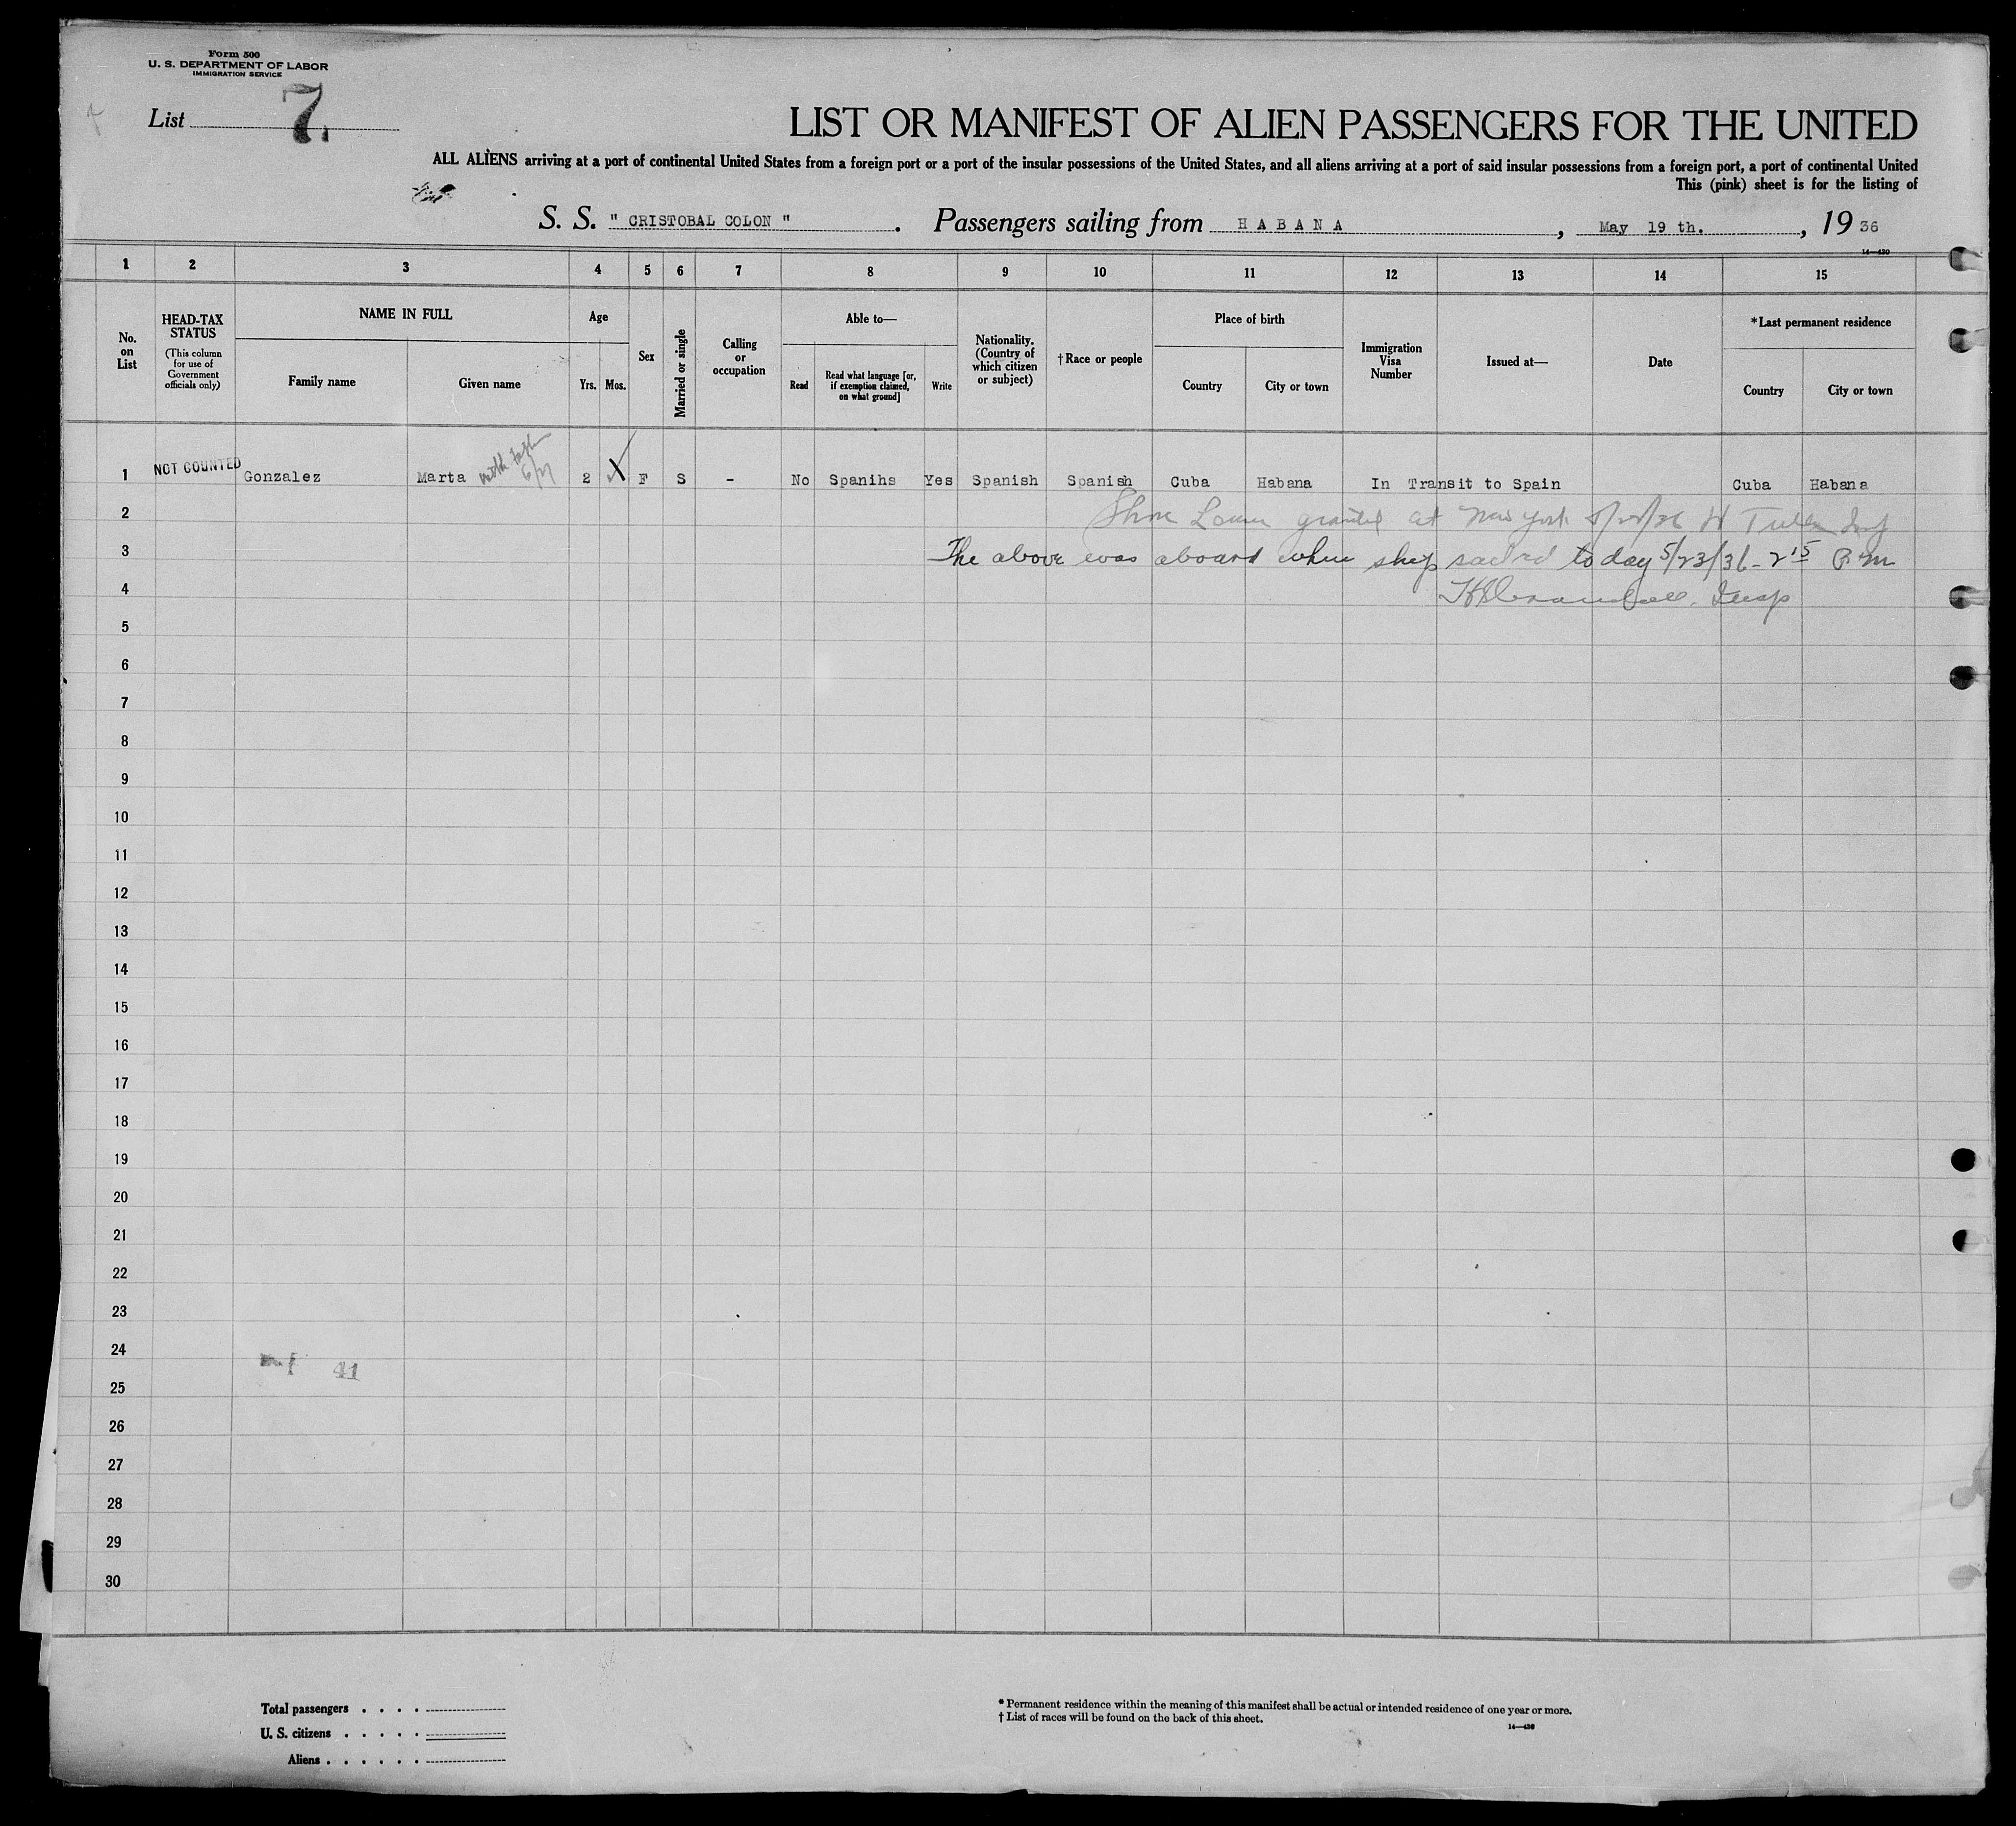 Form 500
U. S. DEPARTMENT OF LABOR
IMMIGRATION SERVICE
List 7.
LIST OR MANIFEST OF ALIEN PASSENGERS FOR THE UNITED
ALL ALIENS arriving at a port of continental United States from a foreign port or a port of the insular possessions of the United States, and all aliens arriving at a port of said insular possessions from a foreign port, a port of continental United
This (pink) sheet is for the listing of
S. S. " CRISTOBAL COLON ". Passengers sailing from H A B A N A, May 19 th., 19 36
14—430
1 2 3 4 5 6 7 8 9 10 11 12 13 14 15
No. on List
HEAD-TAX STATUS
(This column for use of Government officials only)
NAME IN FULL
Family name
Given name
Age
Yrs. Mos.
Sex
Married or single
Calling or occupation
Able to—
Read
Read what language [or, if exemption claimed, on what ground]
Write
Nationality. (Country of which citizen or subject)
†Race or people
Place of birth
Country
City or town
Immigration Visa Number
Issued at—
Date
*Last permanent residence
Country
City or town
with father
6/27
1 NOT COUNTED Gonzalez Marta 2 F S - No Spanihs Yes Spanish Spanish Cuba Habana In Transit to Spain Cuba Habana
2 Shore Leave granted at New York
3 The above was aboard when ship sailed today 5/23/36 - 2 15 P.m
4 Insp
5
6
7
8
9
10
11
12
13
14
15
16
17
18
19
20
21
22
23
24
41
25
26
27
28
29
30
Total passengers . . . .
U. S. citizens . . . . .
Aliens . . . . . .
* Permanent residence within the meaning of this manifest shall be actual or intended residence of one year or more.
† List of races will be found on the back of this sheet.
14—430